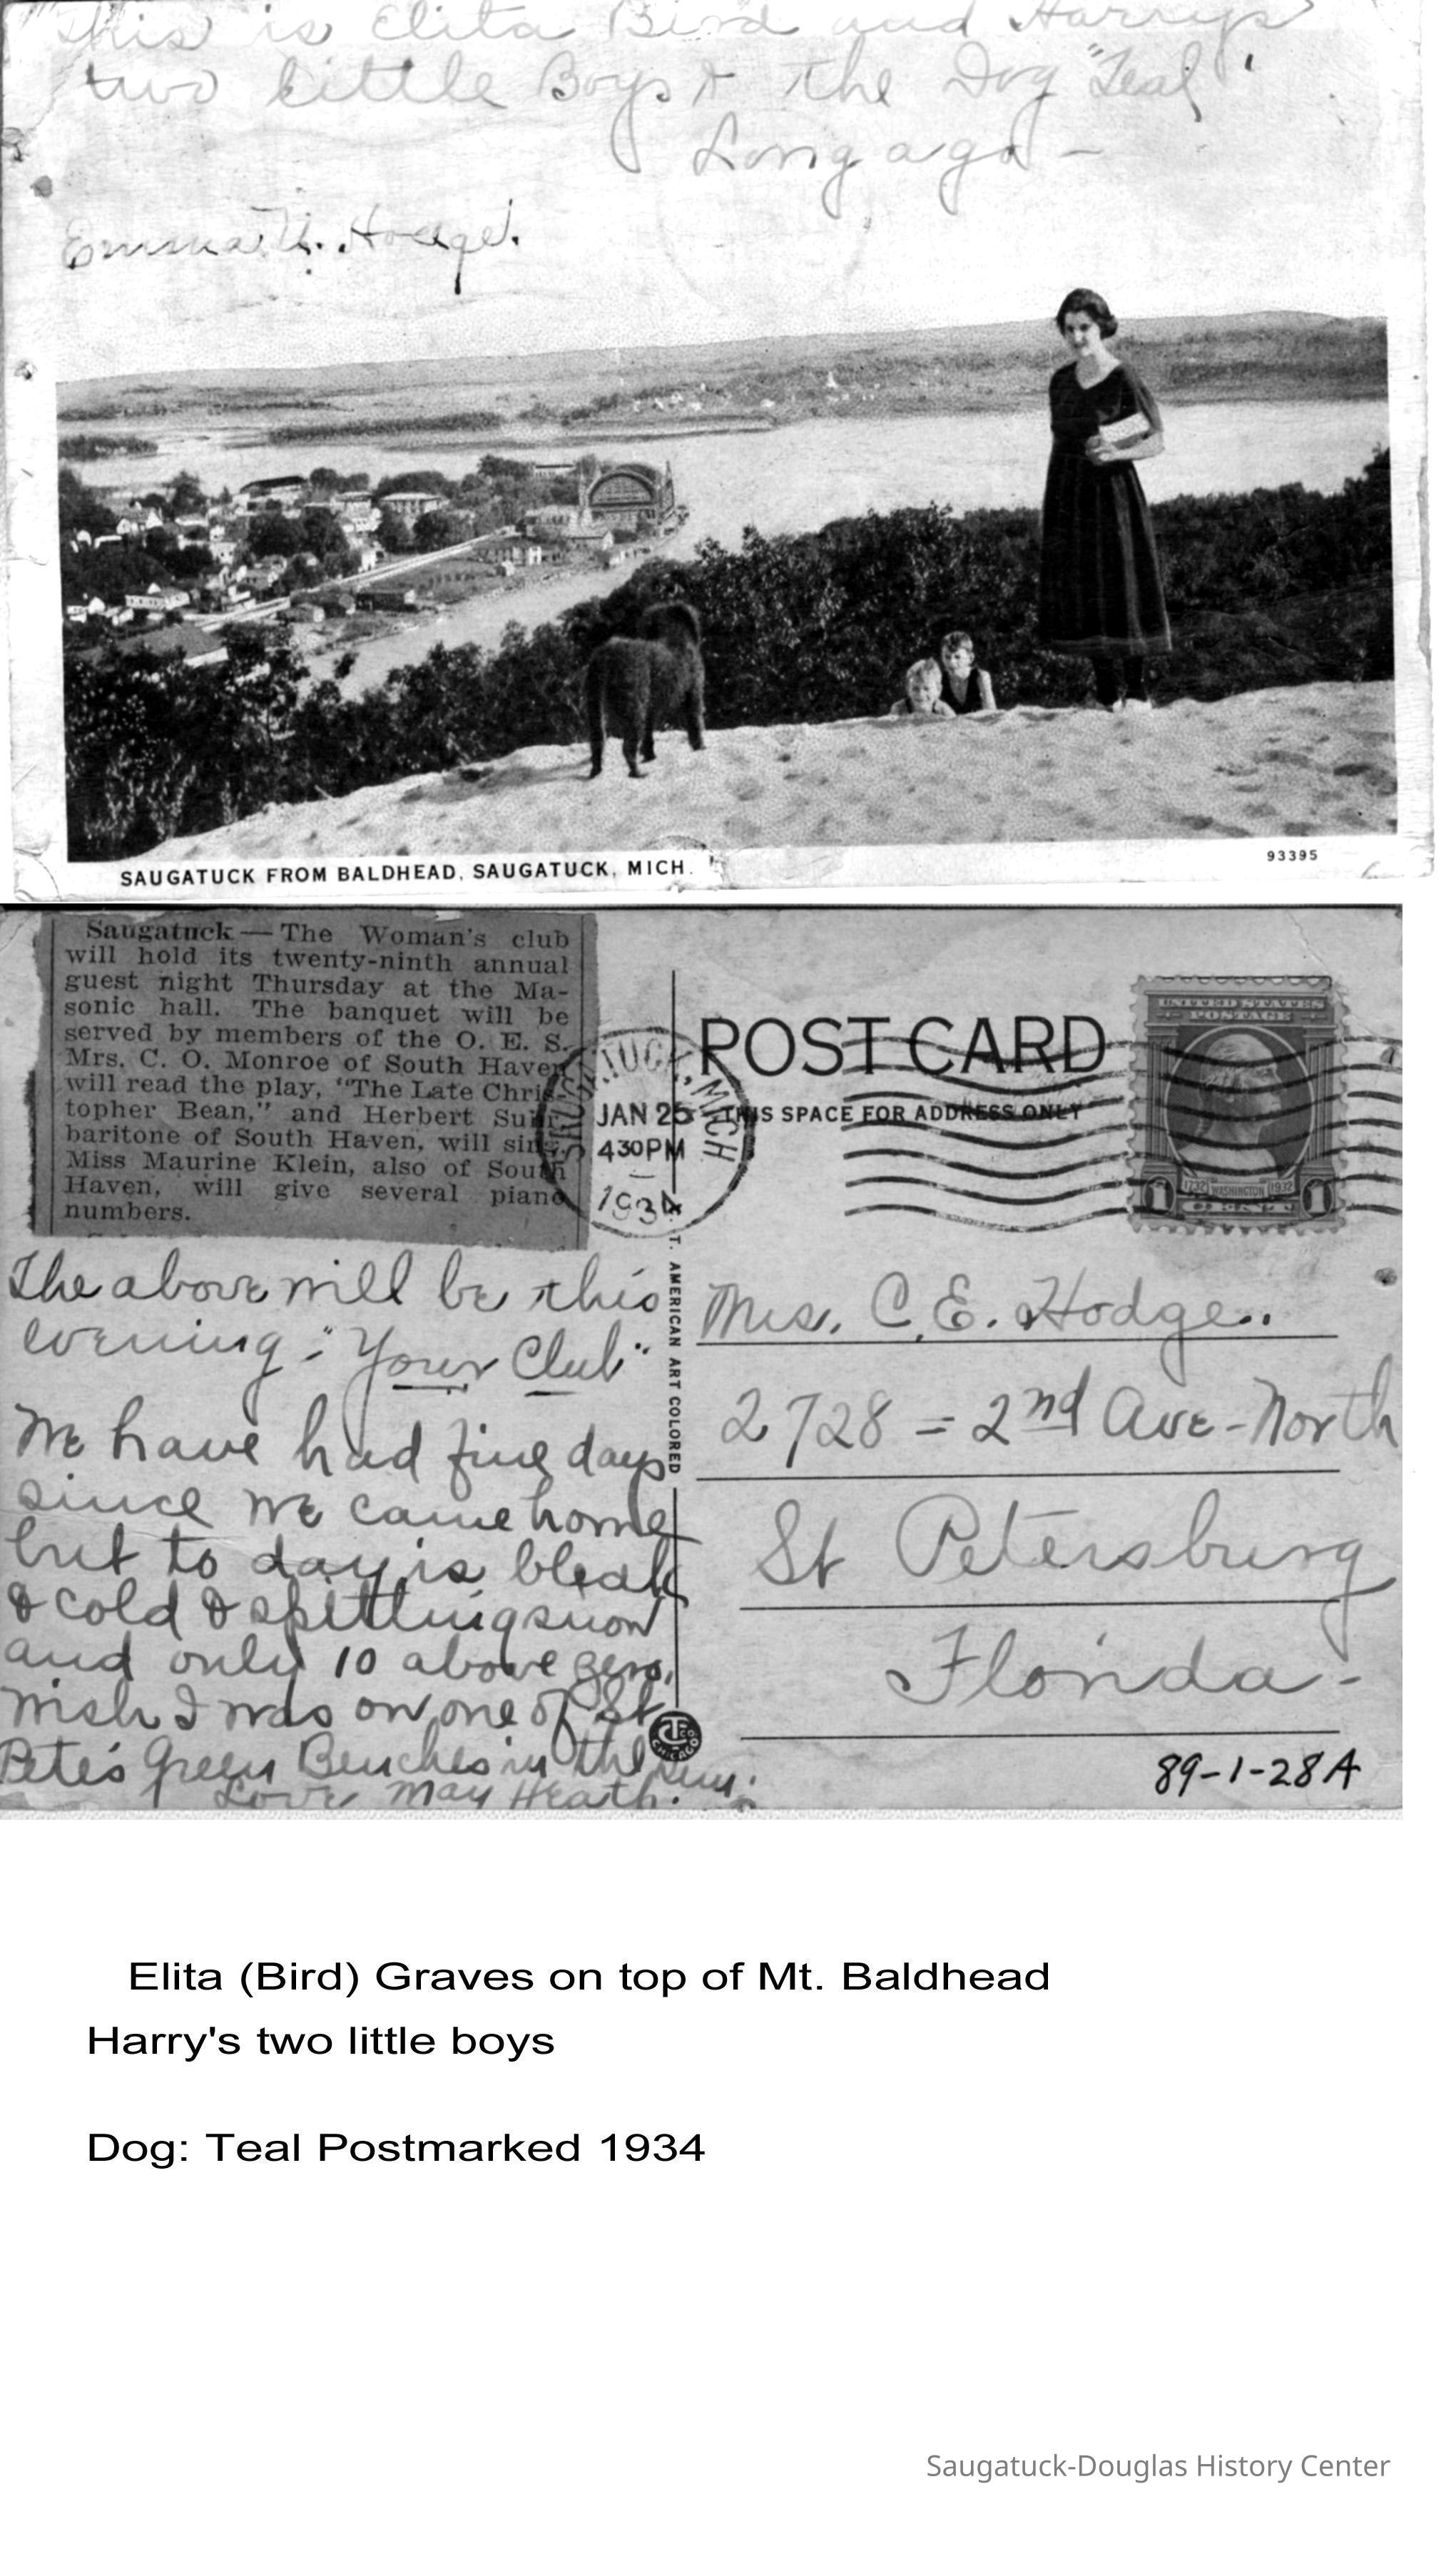 This is Elita Bird and Harrys
two little Boys & the Dog "Teal"
Long ago -
Emma Hodge.
SAUGATUCK FROM BALDHEAD, SAUGATUCK, MICH.
93395
Saugatuck — The Woman's club
will hold its twenty-ninth annual
guest night Thursday at the Ma-
sonic hall. The banquet will be
served by members of the O. E. S.
Mrs. C. O. Monroe of South Haven
will read the play, "The Late Chris-
topher Bean," and Herbert
baritone of South Haven, will sing.
Miss Maurine Klein, also of South
Haven, will give several piano
numbers.
SAUGATUCK, MICH
JAN 25
430PM
1934
POST CARD
THIS SPACE FOR ADDRESS ONLY
UNITED STATES
POSTAGE
1732 WASHINGTON 1932
1 CENT 1
The above will be this
evening - "Your Club"
We have had fine days
since we came home
but to day is bleak
& cold & spitting snow
and only 10 above zero,
wish I was on one of St
Pete's Green Benches in the sun.
Love May Heath.
C. T. AMERICAN ART COLORED
CHICAGO
Mrs. C. E. Hodge..
2728 = 2nd Ave - North
St Petersburg
Florida -
89-1-28A
Elita (Bird) Graves on top of Mt. Baldhead
Harry's two little boys
Dog: Teal Postmarked 1934
Saugatuck-Douglas History Center